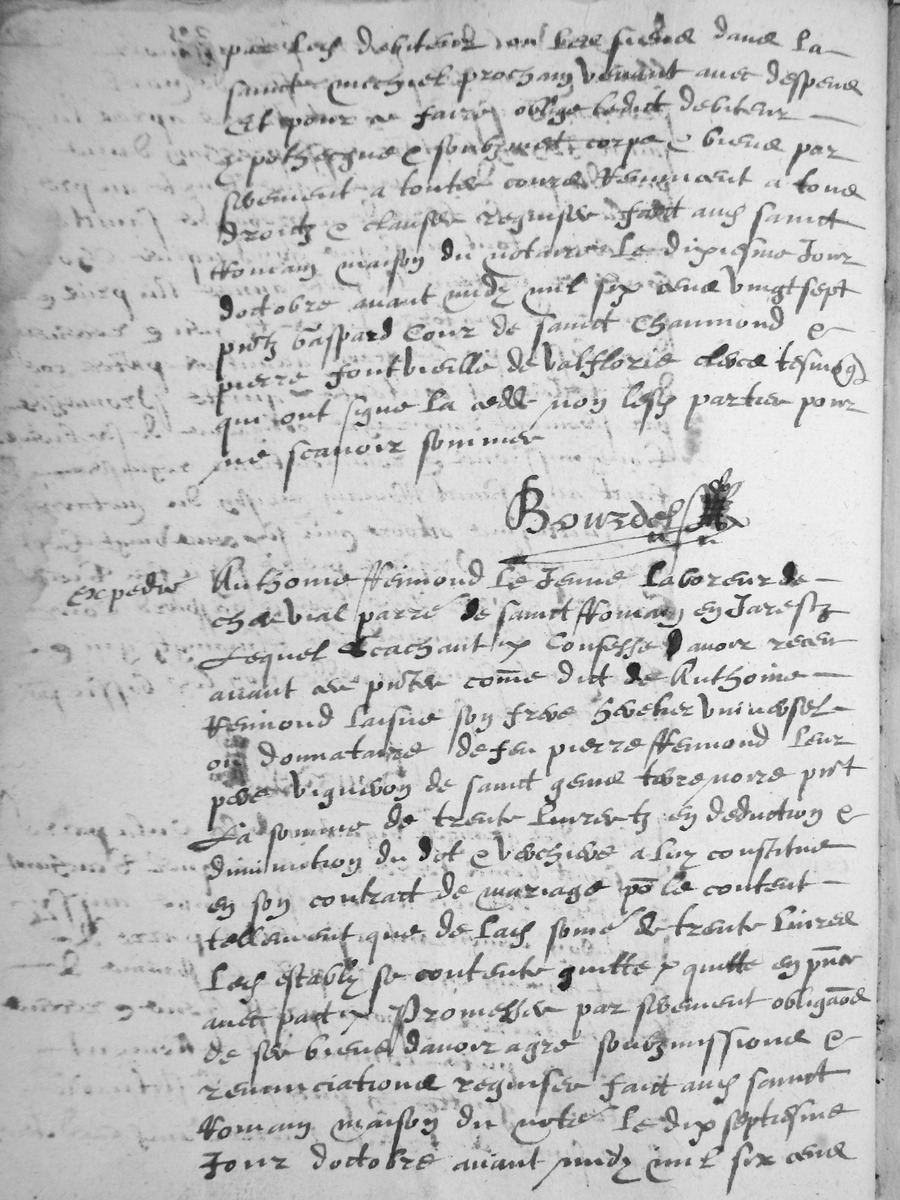 par led debiteur ou les siens dans la
sainct michiel prochain venant avec despens
Et pour ce faire oblige ledict debiteur
ypothecque & soubzmet corps & biens par
serement a toutes cours Renuncent a tous
droitz & clauses requises faict aud sainct
Romain maison du notaire Le dixiesme Jour
doctobre avant midy mil six cens vingt sept
pntz Gaspard Cour de sainct Chaumond &
pierre fontvieille de valflorie clercz tesmoings
qui ont signe la cedde non lesd parties pour
ne scavoir sommes
Bourdel
expedie
Anthoine Reimond le Jeune laboreur de
chervial parre de sainct Romain en Jarestz
Lequel Scachant & Confesse davoir receu
avant ces pntes come dict de Anthoine
Reimond laisne son frere heretier universel
ou donnataire de feu pierre Reimond leur
pere vigneron de sainct genis terre noire pnt
La somme de trente livretz en deduction &
diminution du dot & verchiere a luy constitue
en son contract de mariage po le content
tellement que de lad some de trente livres
Led estably se contente quitte & quitte en pnce
avec pact & Promesses par serement obligaons
de ses biens davoir agre soubzmissions &
renunciations requises faict aud sainct
Romain maison du notre Le dix septiesme
Jour doctobre avant midy mil six cens